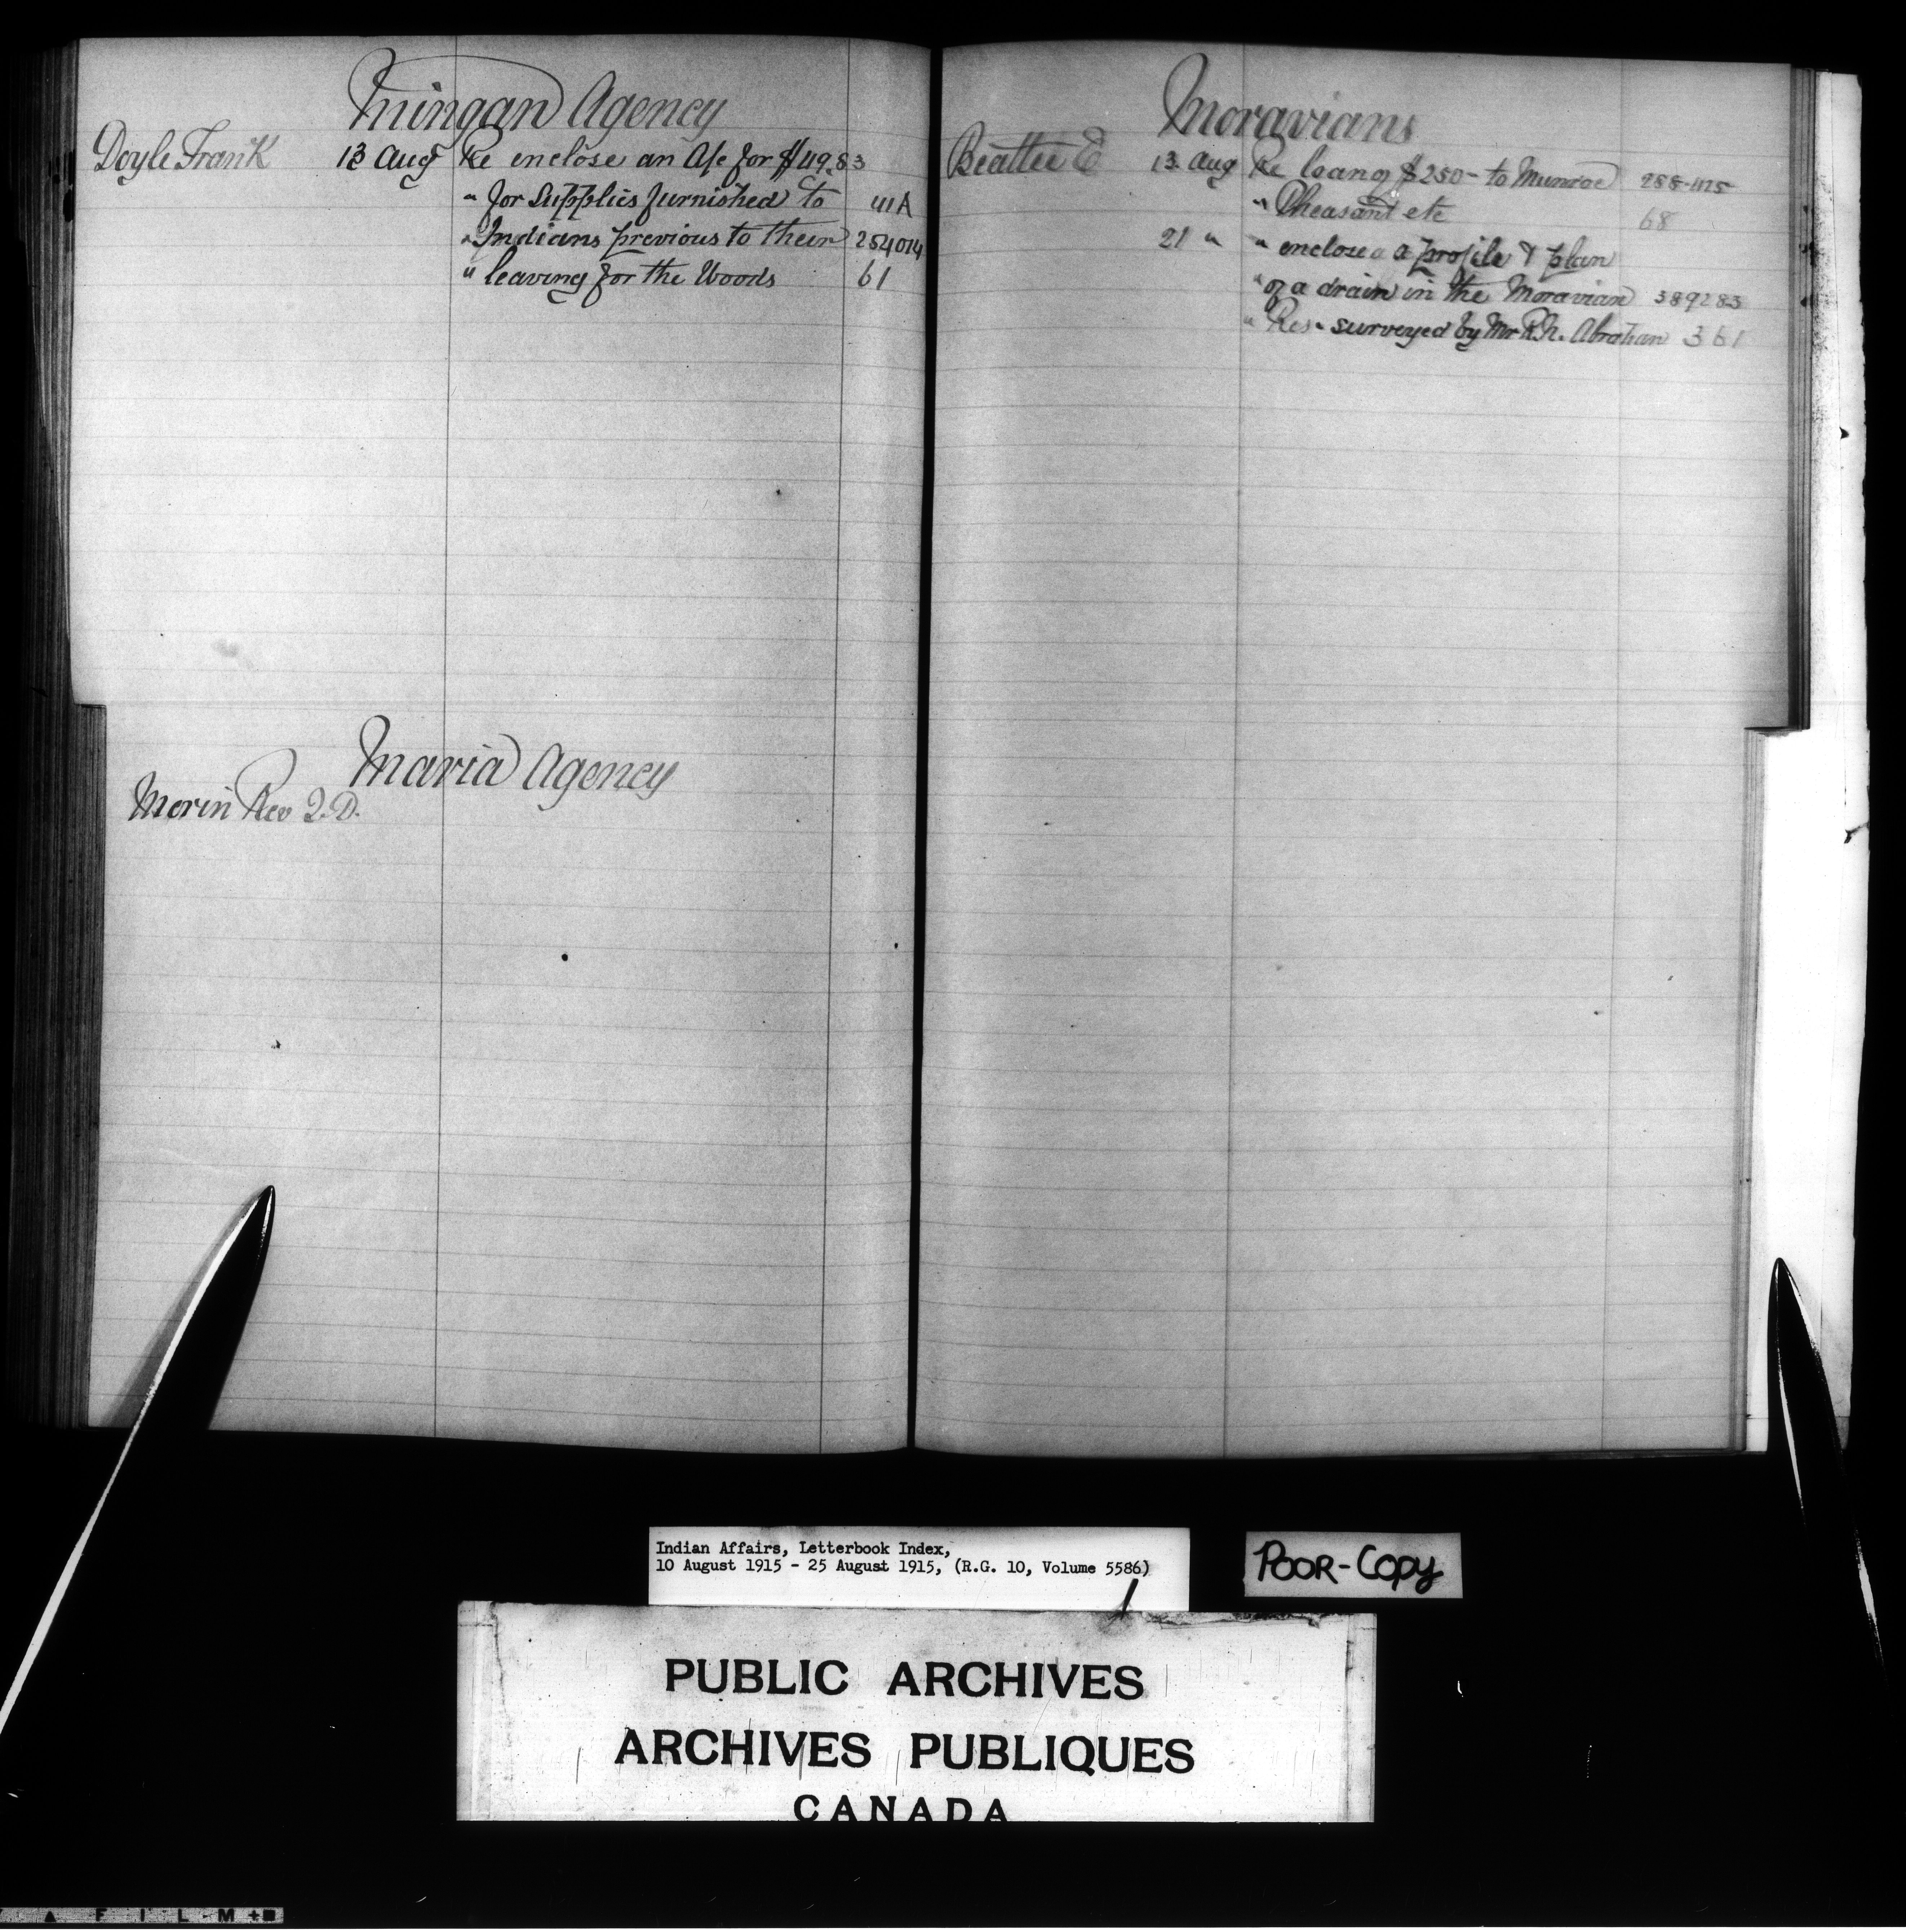 Mingan Agency
Doyle Frank 13 Aug Re enclose an A/c for $49.83
" for Supplies furnished to 411A
" Indians previous to their 254014
" leaving for the Woods 61
Maria Agency
Morin Rev J.D.
Moravians
Beattie E 13 Aug Re loan of $250- to Munroe 288-1125
" Pheasant etc 68
21 " " enclose a profile & plan
" of a drain in the Moravian 389283
" Res- surveyed by Mr R.R. Abraham 361
Indian Affairs, Letterbook Index,
10 August 1915 - 25 August 1915, (R.G. 10, Volume 5586)
POOR-COPY
PUBLIC ARCHIVES
ARCHIVES PUBLIQUES
CANADA
FILM